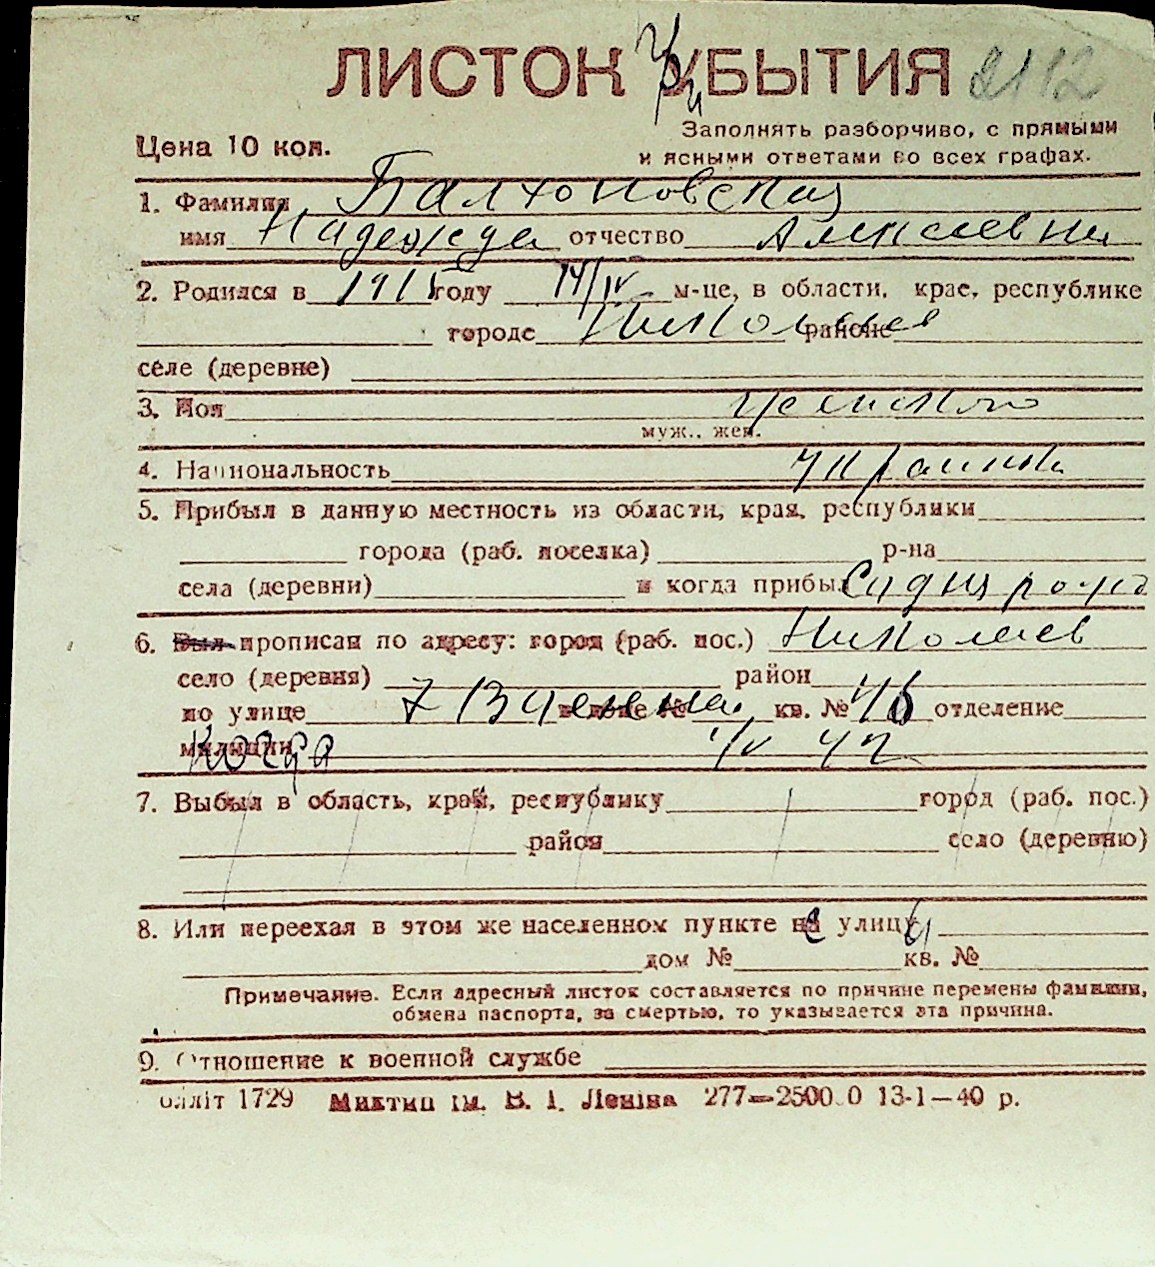 ЛИСТОК УБЫТИЯ 2112
Цена 10 коп.
Заполнять разборчиво, с прямыми
и ясными ответами во всех графах.
1. Фамилия Балхоновская
имя Надежда отчество Алексеевна
2. Родился в 1915 году 14/IV м-це, в области, крае, республике
городе Николаев районе
селе (деревне)
3. Пол женского
муж., жен.
4. Национальность
5. Прибыл в данную местность из области, края, республики
города (раб. поселка) р-на
села (деревни) и когда прибыл
6. Был прописан по адресу: город (раб. пос.) Николаев
село (деревня) район
по улице 7 Военная в доме № кв. № отделение
милиции
7. Выбыл в область, край, республику город (раб. пос.)
район село (деревню)
8. Или переехал в этом же населенном пункте на улицу
дом № кв. №
Примечание. Если адресный листок составляется по причине перемены фамилии,
обмена паспорта, за смертью, то указывается эта причина.
9. Отношение к военной службе
1729 ім. В. І. Леніна 277—2500.0 13-1—40 р.